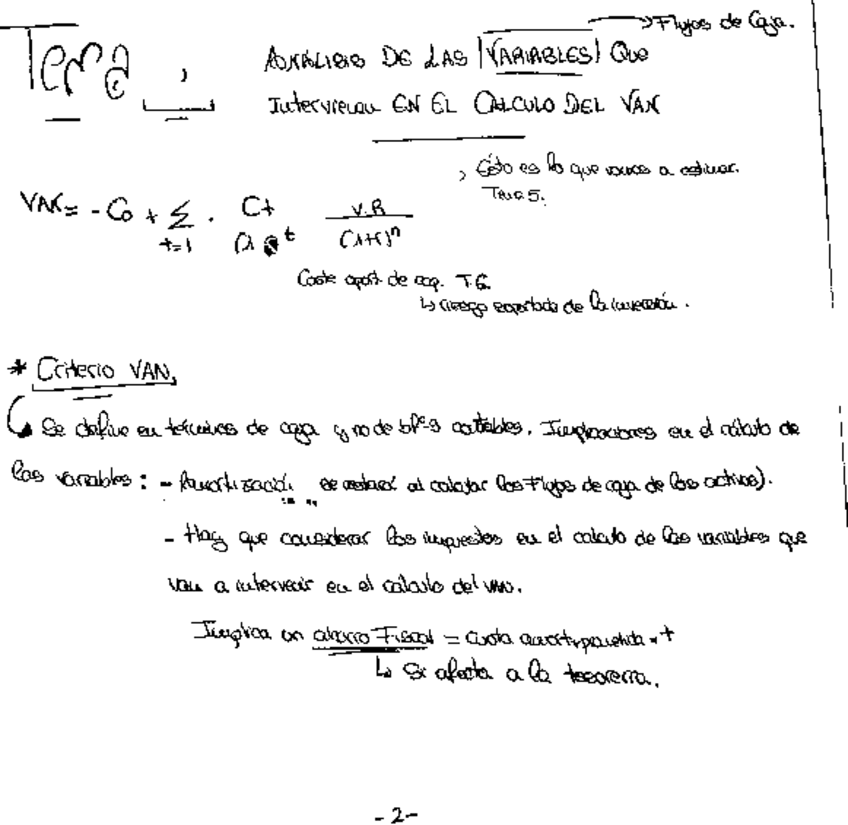 → Flujos de Caja.
Tema
ANÁLISIS DE LAS VARIABLES QUE
Intervienen EN EL CALCULO DEL VAN
Esto es lo que vamos a estimar.
Tema 5.
VAN = - Co + Σ t=1 . Ct t V.R (1+r)^n
Coste oport. de cap.
↳ riesgo esperado de la inversión.
* Criterio VAN,
Se define en términos de caja y no de contables. Implicaciones en el cálculo de
las variables: - Amortización al calcular los Flujos de caja de los activos).
- Hay que considerar los impuestos en el calculo de las variables que
van a intervenir en el cálculo del VAN.
Implica un ahorro Fiscal = cuota amort. * t
↳ Si afecta a la tesorería.
- 2 -